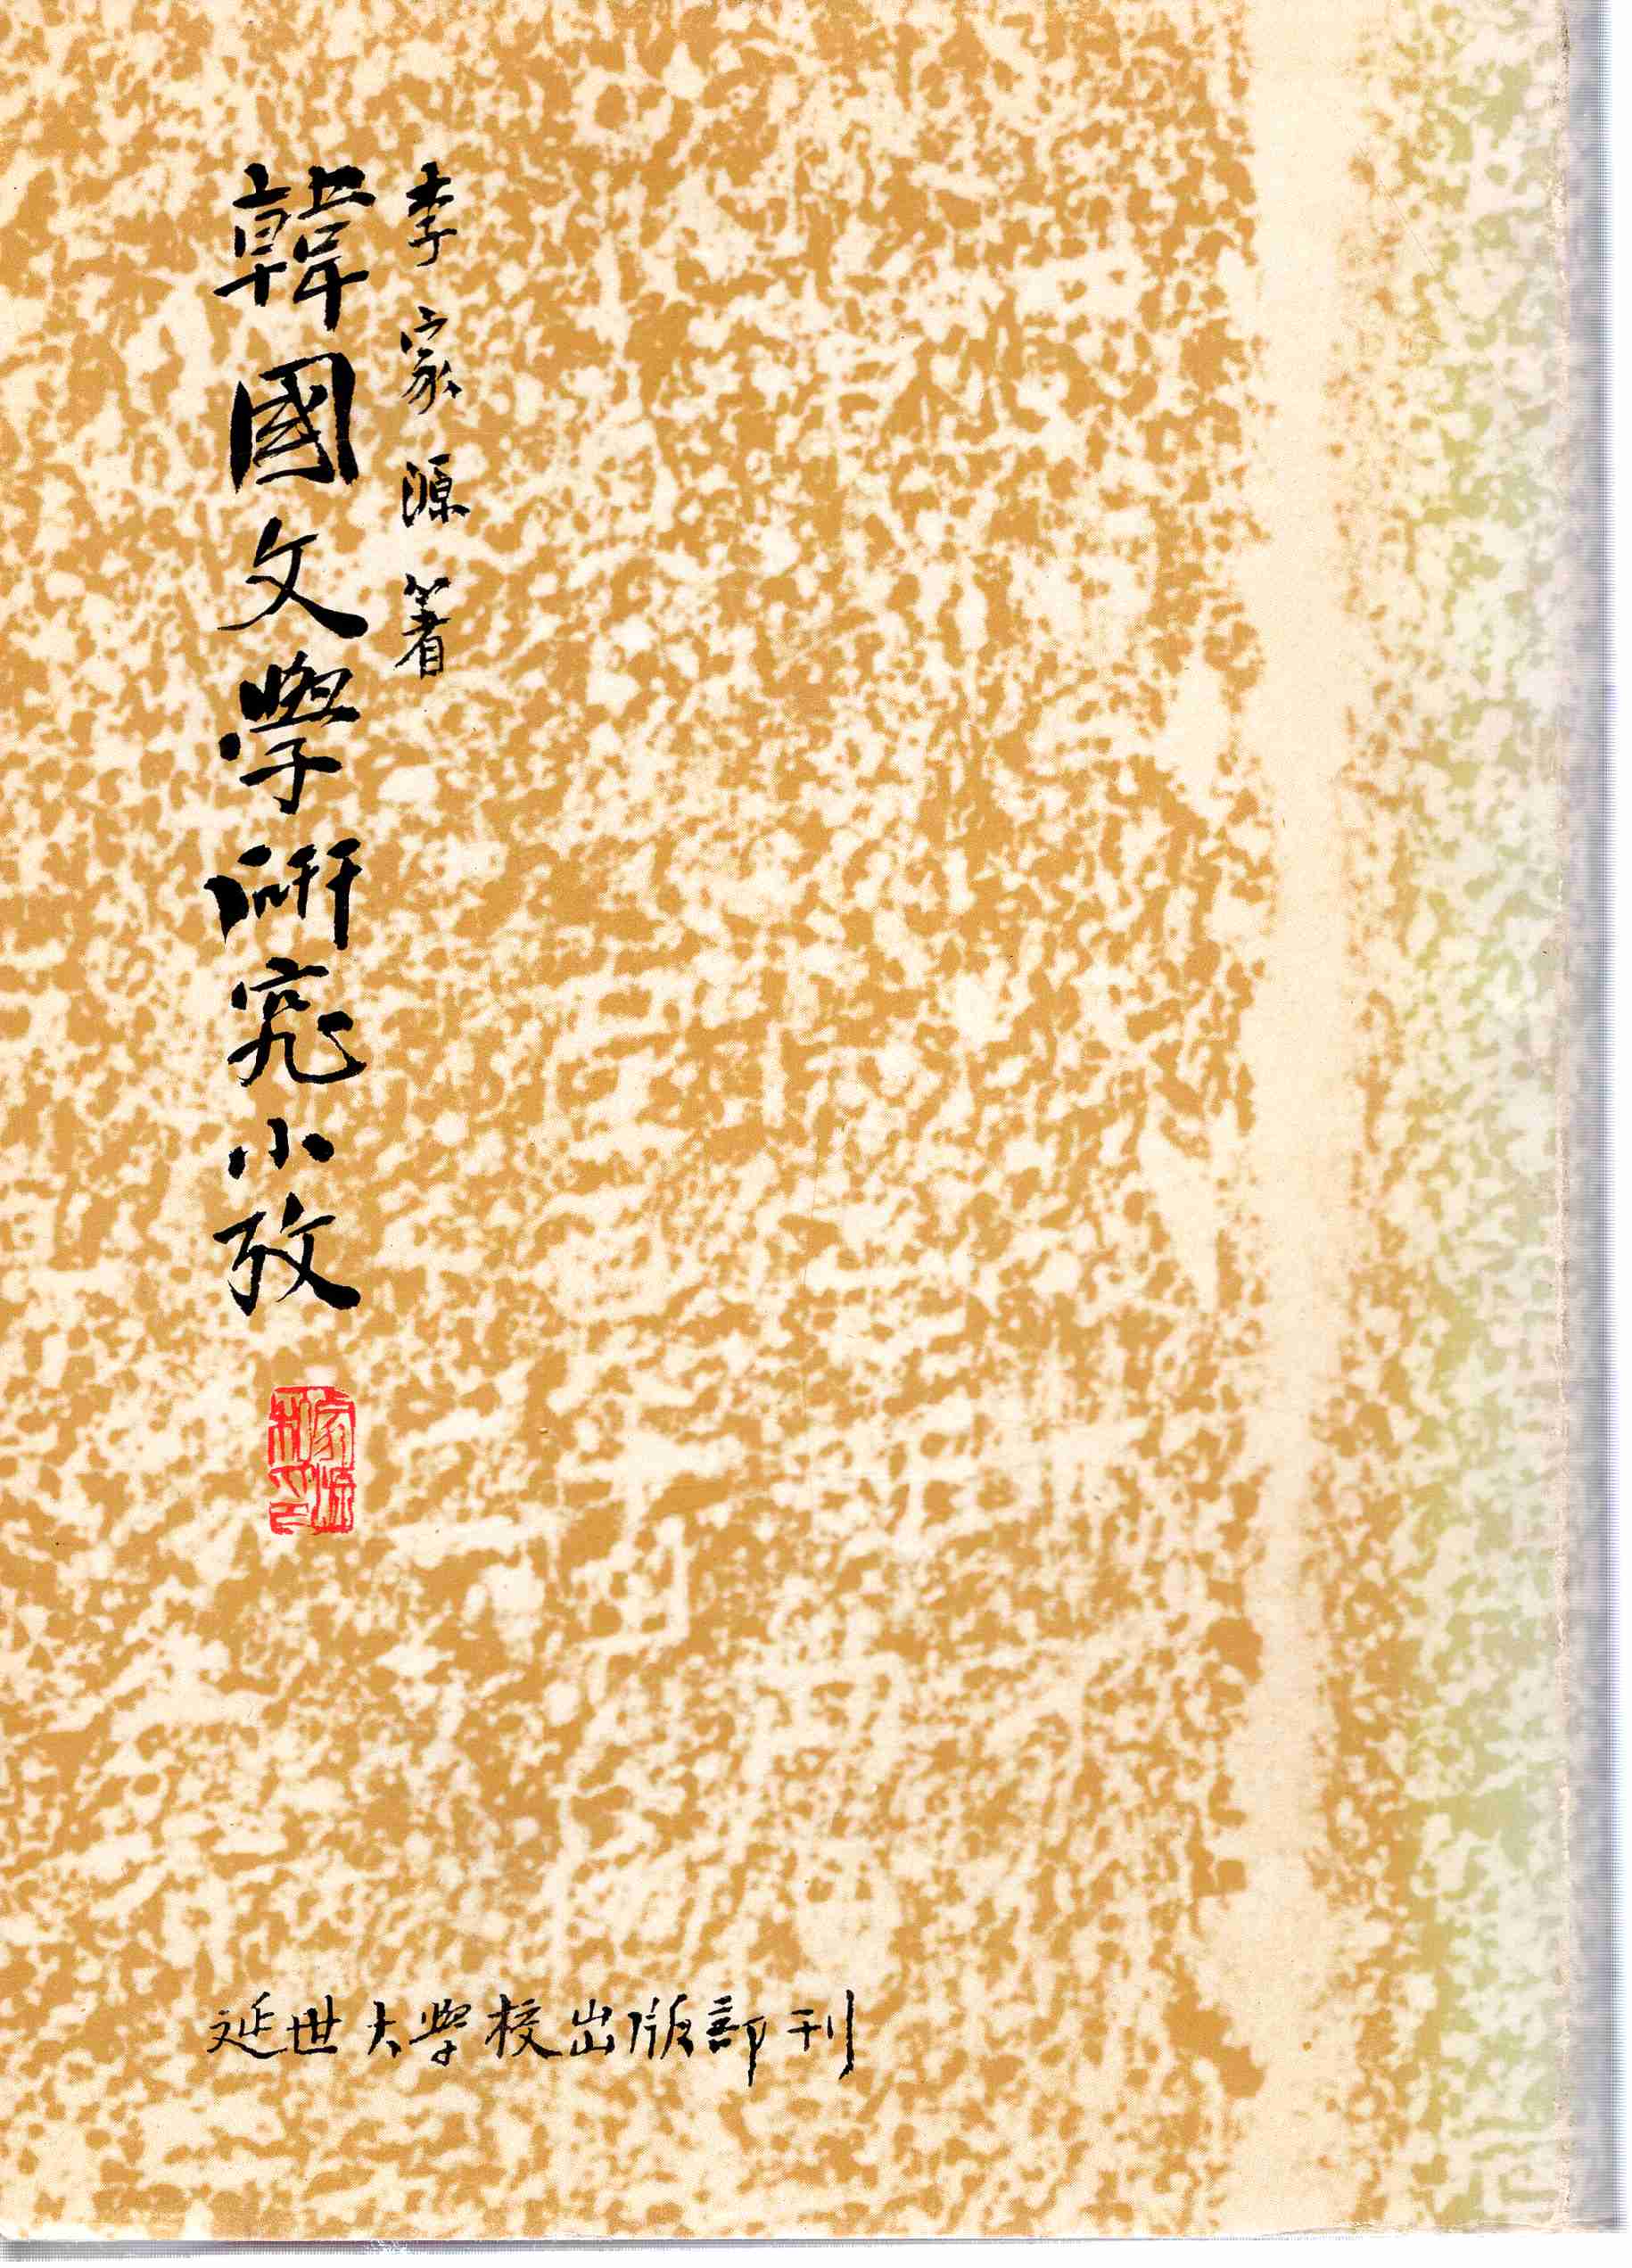 李家源著
韓國文學硏究小攷
家源
制印
延世大學校出版部刊